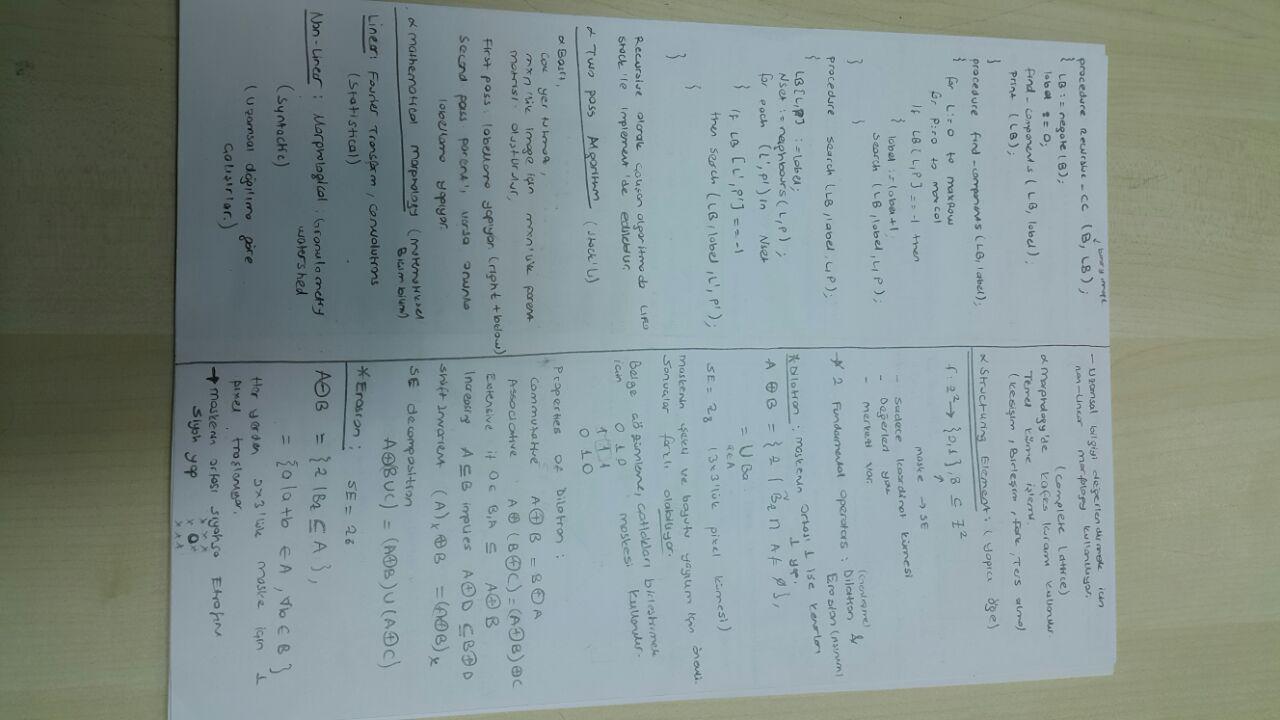 binary image
procedure Recursive-CC (B, LB);
{ LB := negate (B);
label := 0;
find-components (LB, label);
print (LB);
}
procedure find-components (LB, label);
{ for L:=0 to maxRow
for P:=0 to maxcol
if LB [L,P] == -1 then
{ label := label+1;
search (LB, label, L, P);
} }
procedure search (LB, label, L, P);
{
LB[L,P] := label;
Nset := neighbours (L, P);
for each (L', P') in Nset
} if LB [L', P'] == -1
then search (LB, label, L', P');
{
}
Recursive olarak çalışan algoritma da LIFO
stack'le implement'de edilebilir.
α Two pass Algorithm (stack'li)
α Basit,
Çok yer tutmaz,
mxn'lik image için mxn'lik parent
matrisi oluşturulur,
First pass: labellama yapıyor (right + below)
Second pass parent'ı varsa onunla
labellama yapıyor.
α mathematical morphology (matematiksel
Biçim bilim)
Linear: Fourier Transform, Convolutions
(Statistical)
Non-Linear: Morphological: Granulometry
watershed
(Syntactic)
(Uzamsal dağılıma göre
çalışırlar.)
- Uzamsal bilgiyi değerlendirmek için
non-linear morphology kullanılıyor.
(complete Lattice)
α morphology'de kafes kuramı kullanılır.
Temel küme işlemi.
(kesişim, Birleşim, fark, Ters alma)
α Structuring Element: (yapıcı öğe)
f: z² → {0,1}, B ⊆ Z²
maske → SE
- Sadece koordinat kümesi
- Değerleri yok
- merkezi var.
(Genişleme)
→ * 2 Fundamental operators: Dilation &
Erosion (aşınım)
* Dilation: maskenin ortası 1 ise kenarları
1 yap.
A ⊕ B = {z | B̃z ∩ A ≠ ∅},
= ∪ Ba
a∈A
SE = z8 (3x3'lük pixel kümesi)
maskenin şekli ve boyutu yayılım için önemli.
Sonuçlar farklı olabiliyor.
Belge çözümleme, çatlakları birleştirmek
için 0 1 0 maskesi kullanılır.
1 1 1
0 1 0
Properties of Dilation:
Commutative A ⊕ B = B ⊕ A
Associative A ⊕ (B⊕C) = (A⊕B) ⊕C
Extensive if O∈ B, A ⊆ A⊕B
Increasing A ⊆ B implies A⊕D ⊆ B⊕D
Shift Invarient (A)x ⊕ B = (A⊕B)x
SE decomposition
A⊕BUC) = (A⊕B) U (A⊕C)
* Erosion: SE = z8
A⊖B = {z | Bz ⊆ A},
= {a | a+b ∈ A, ∀b ∈ B}
Her yerden 3x3'lük maske için 1
pixel traşlanıyor.
→ maskenin ortası siyahsa Etrafını
siyah yap x x x
x O x
x x x